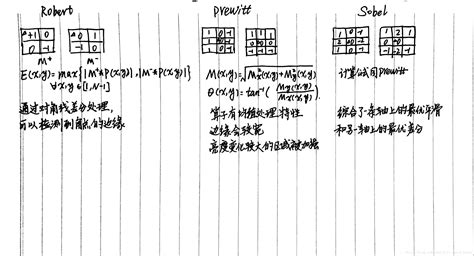 Robert
+1 0
0 -1
M⁺
+0 1
-1 0
M⁻
E(x,y)=max{|M⁺*P(x,y)|,|M⁻*P(x,y)|}
∀x,y∈[1,N-1]
通过对角线差分处理,
可以检测到角点的边缘.
Prewitt
1 0 -1
1 0 -1
1 0 -1
1 1 1
0 0 0
-1 -1 -1
M(x,y)=√Mx²(x,y)+My²(x,y)
θ(x,y)=tan⁻¹(My(x,y)/Mx(x,y))
算子有均值处理特性
边缘会较宽
亮度变化较大的区域被加强
Sobel
1 0 -1
2 0 -2
1 0 -1
1 2 1
0 0 0
-1 -2 -1
计算公式同Prewitt
综合了一条轴上的最优平滑
和另一轴上的最优差分